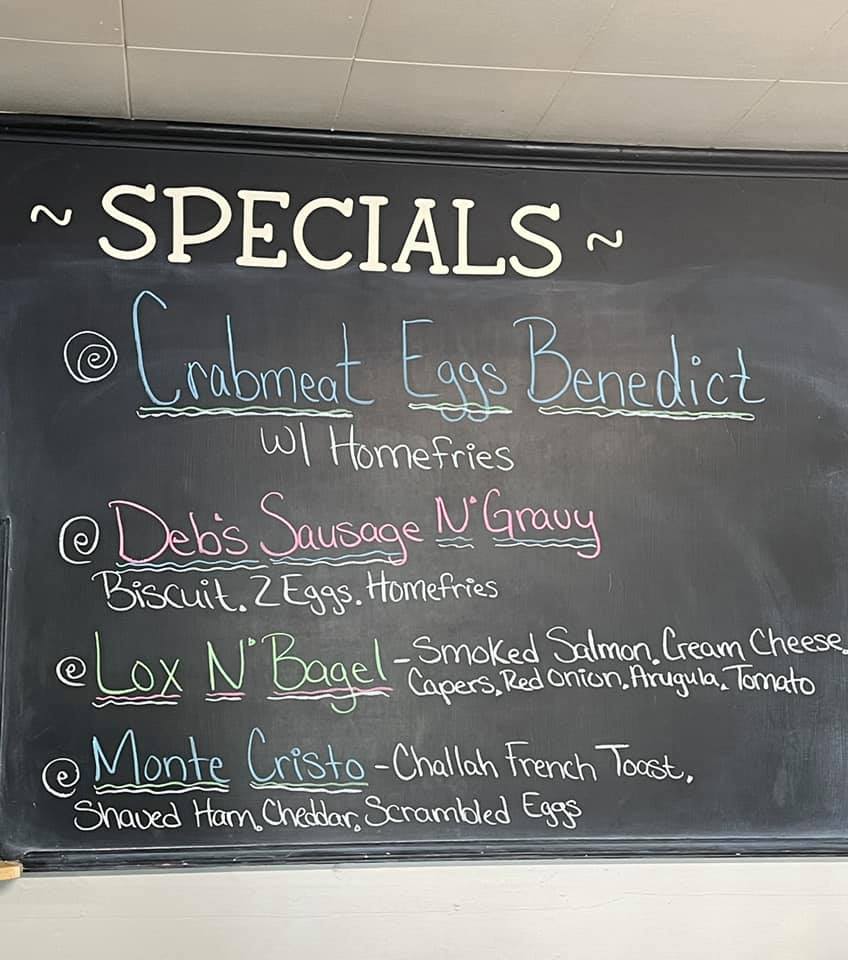 ~ SPECIALS ~
Crabmeat Eggs Benedict
w/ Homefries
Deb's Sausage N' Gravy
Biscuit, 2 Eggs, Homefries
Lox N' Bagel - Smoked Salmon, Cream Cheese,
Capers, Red Onion, Arugula, Tomato
Monte Cristo - Challah French Toast,
Shaved Ham, Cheddar, Scrambled Eggs